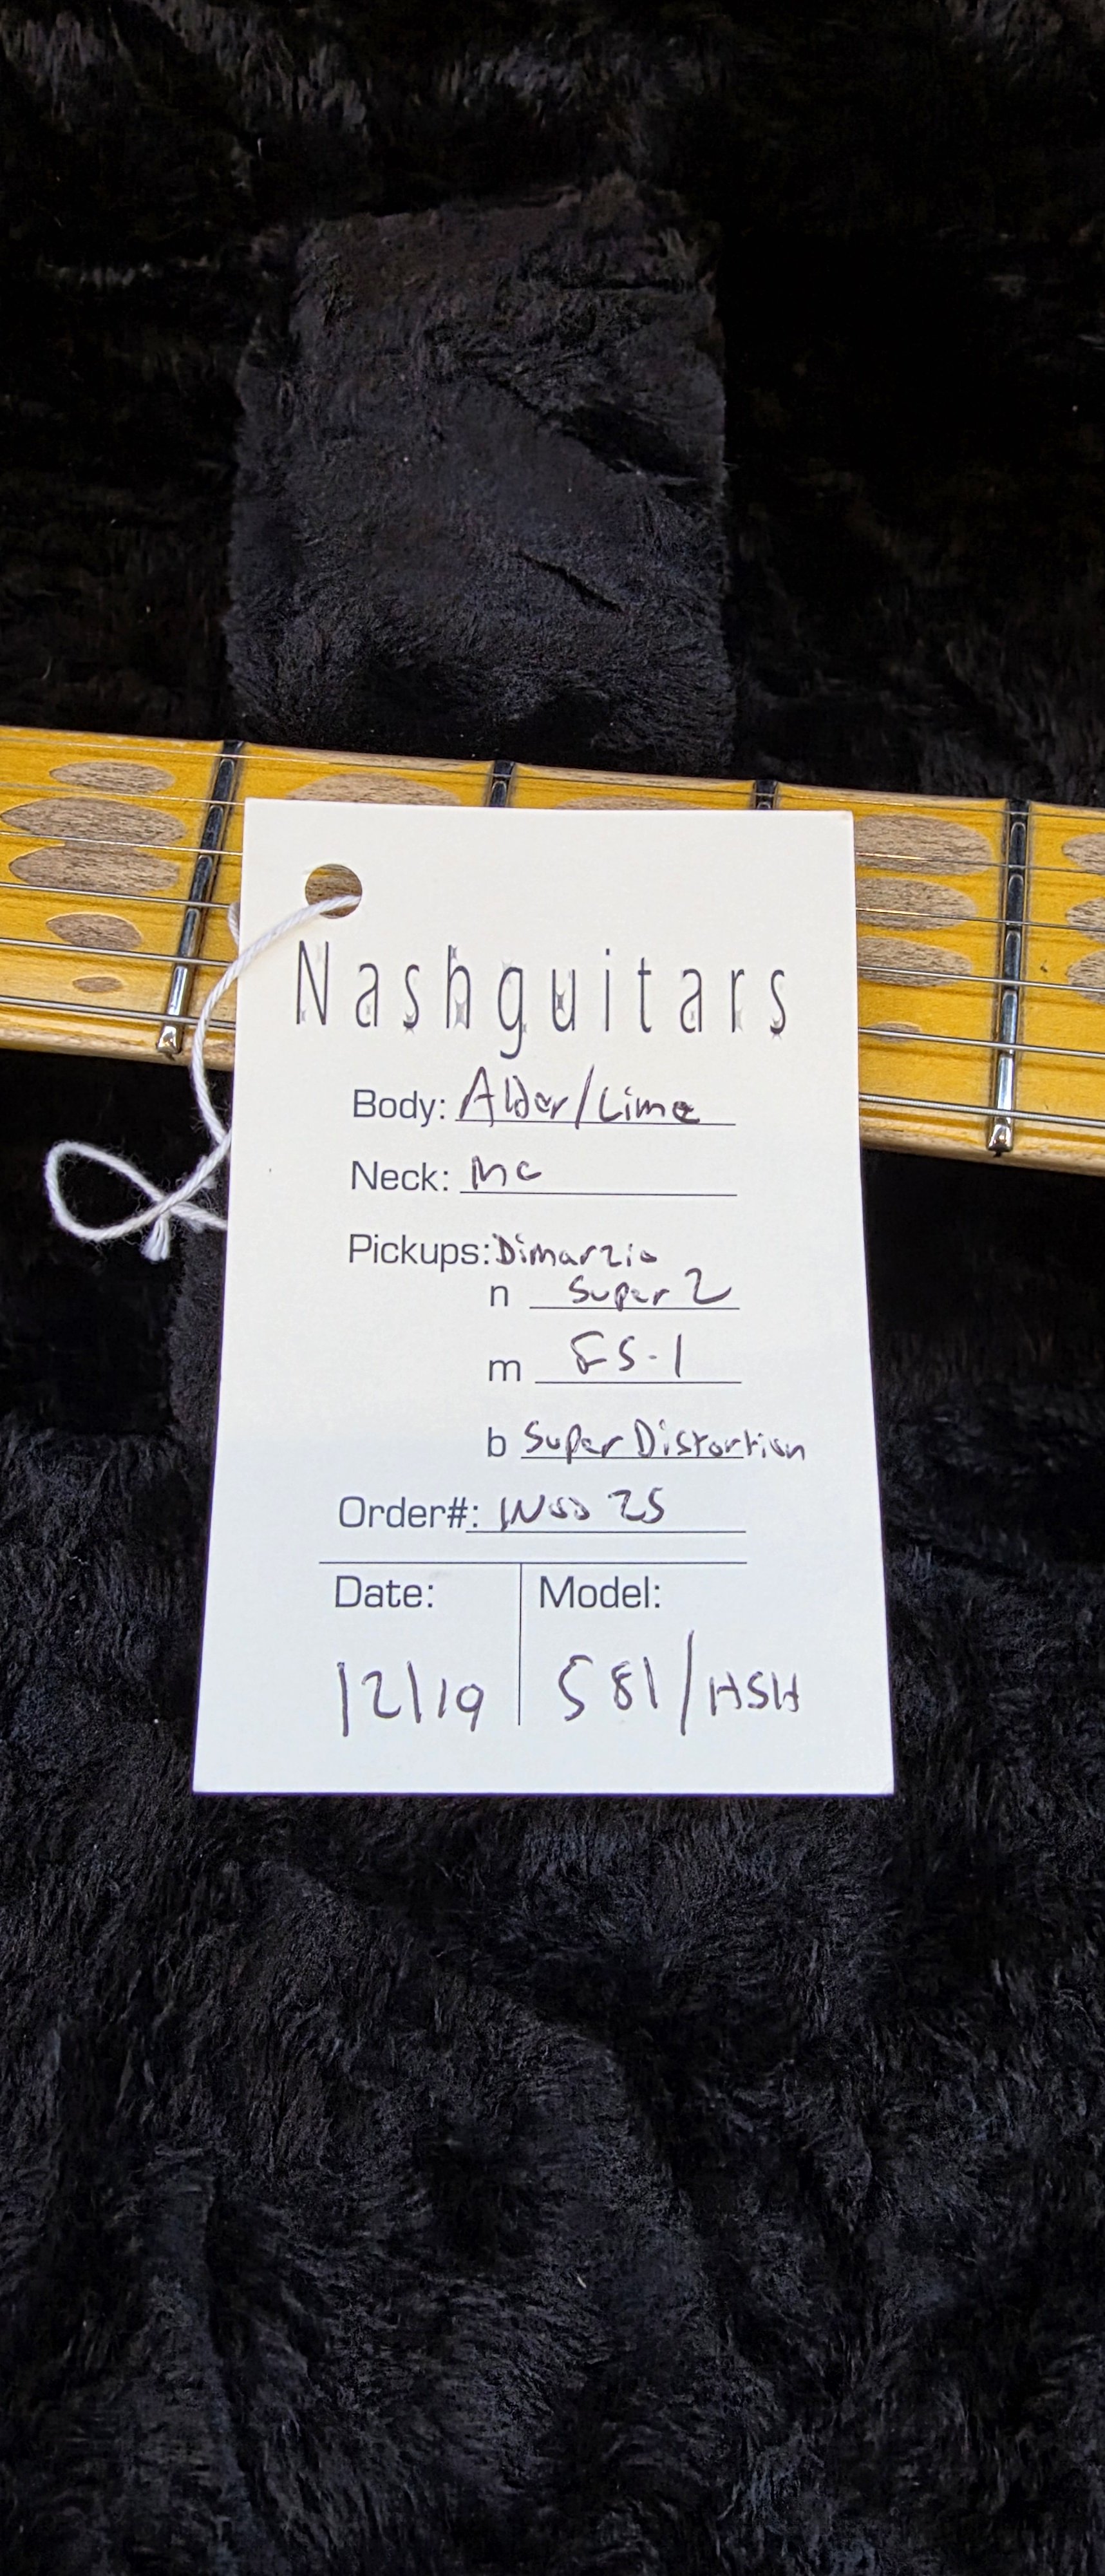 Nashguitars
Body: Alder/Lime
Neck: MC
Pickups: Dimarzio
n Super 2
m FS-1
b Super Distortion
Order#: 25
Date: Model:
12/19 S81/HSH